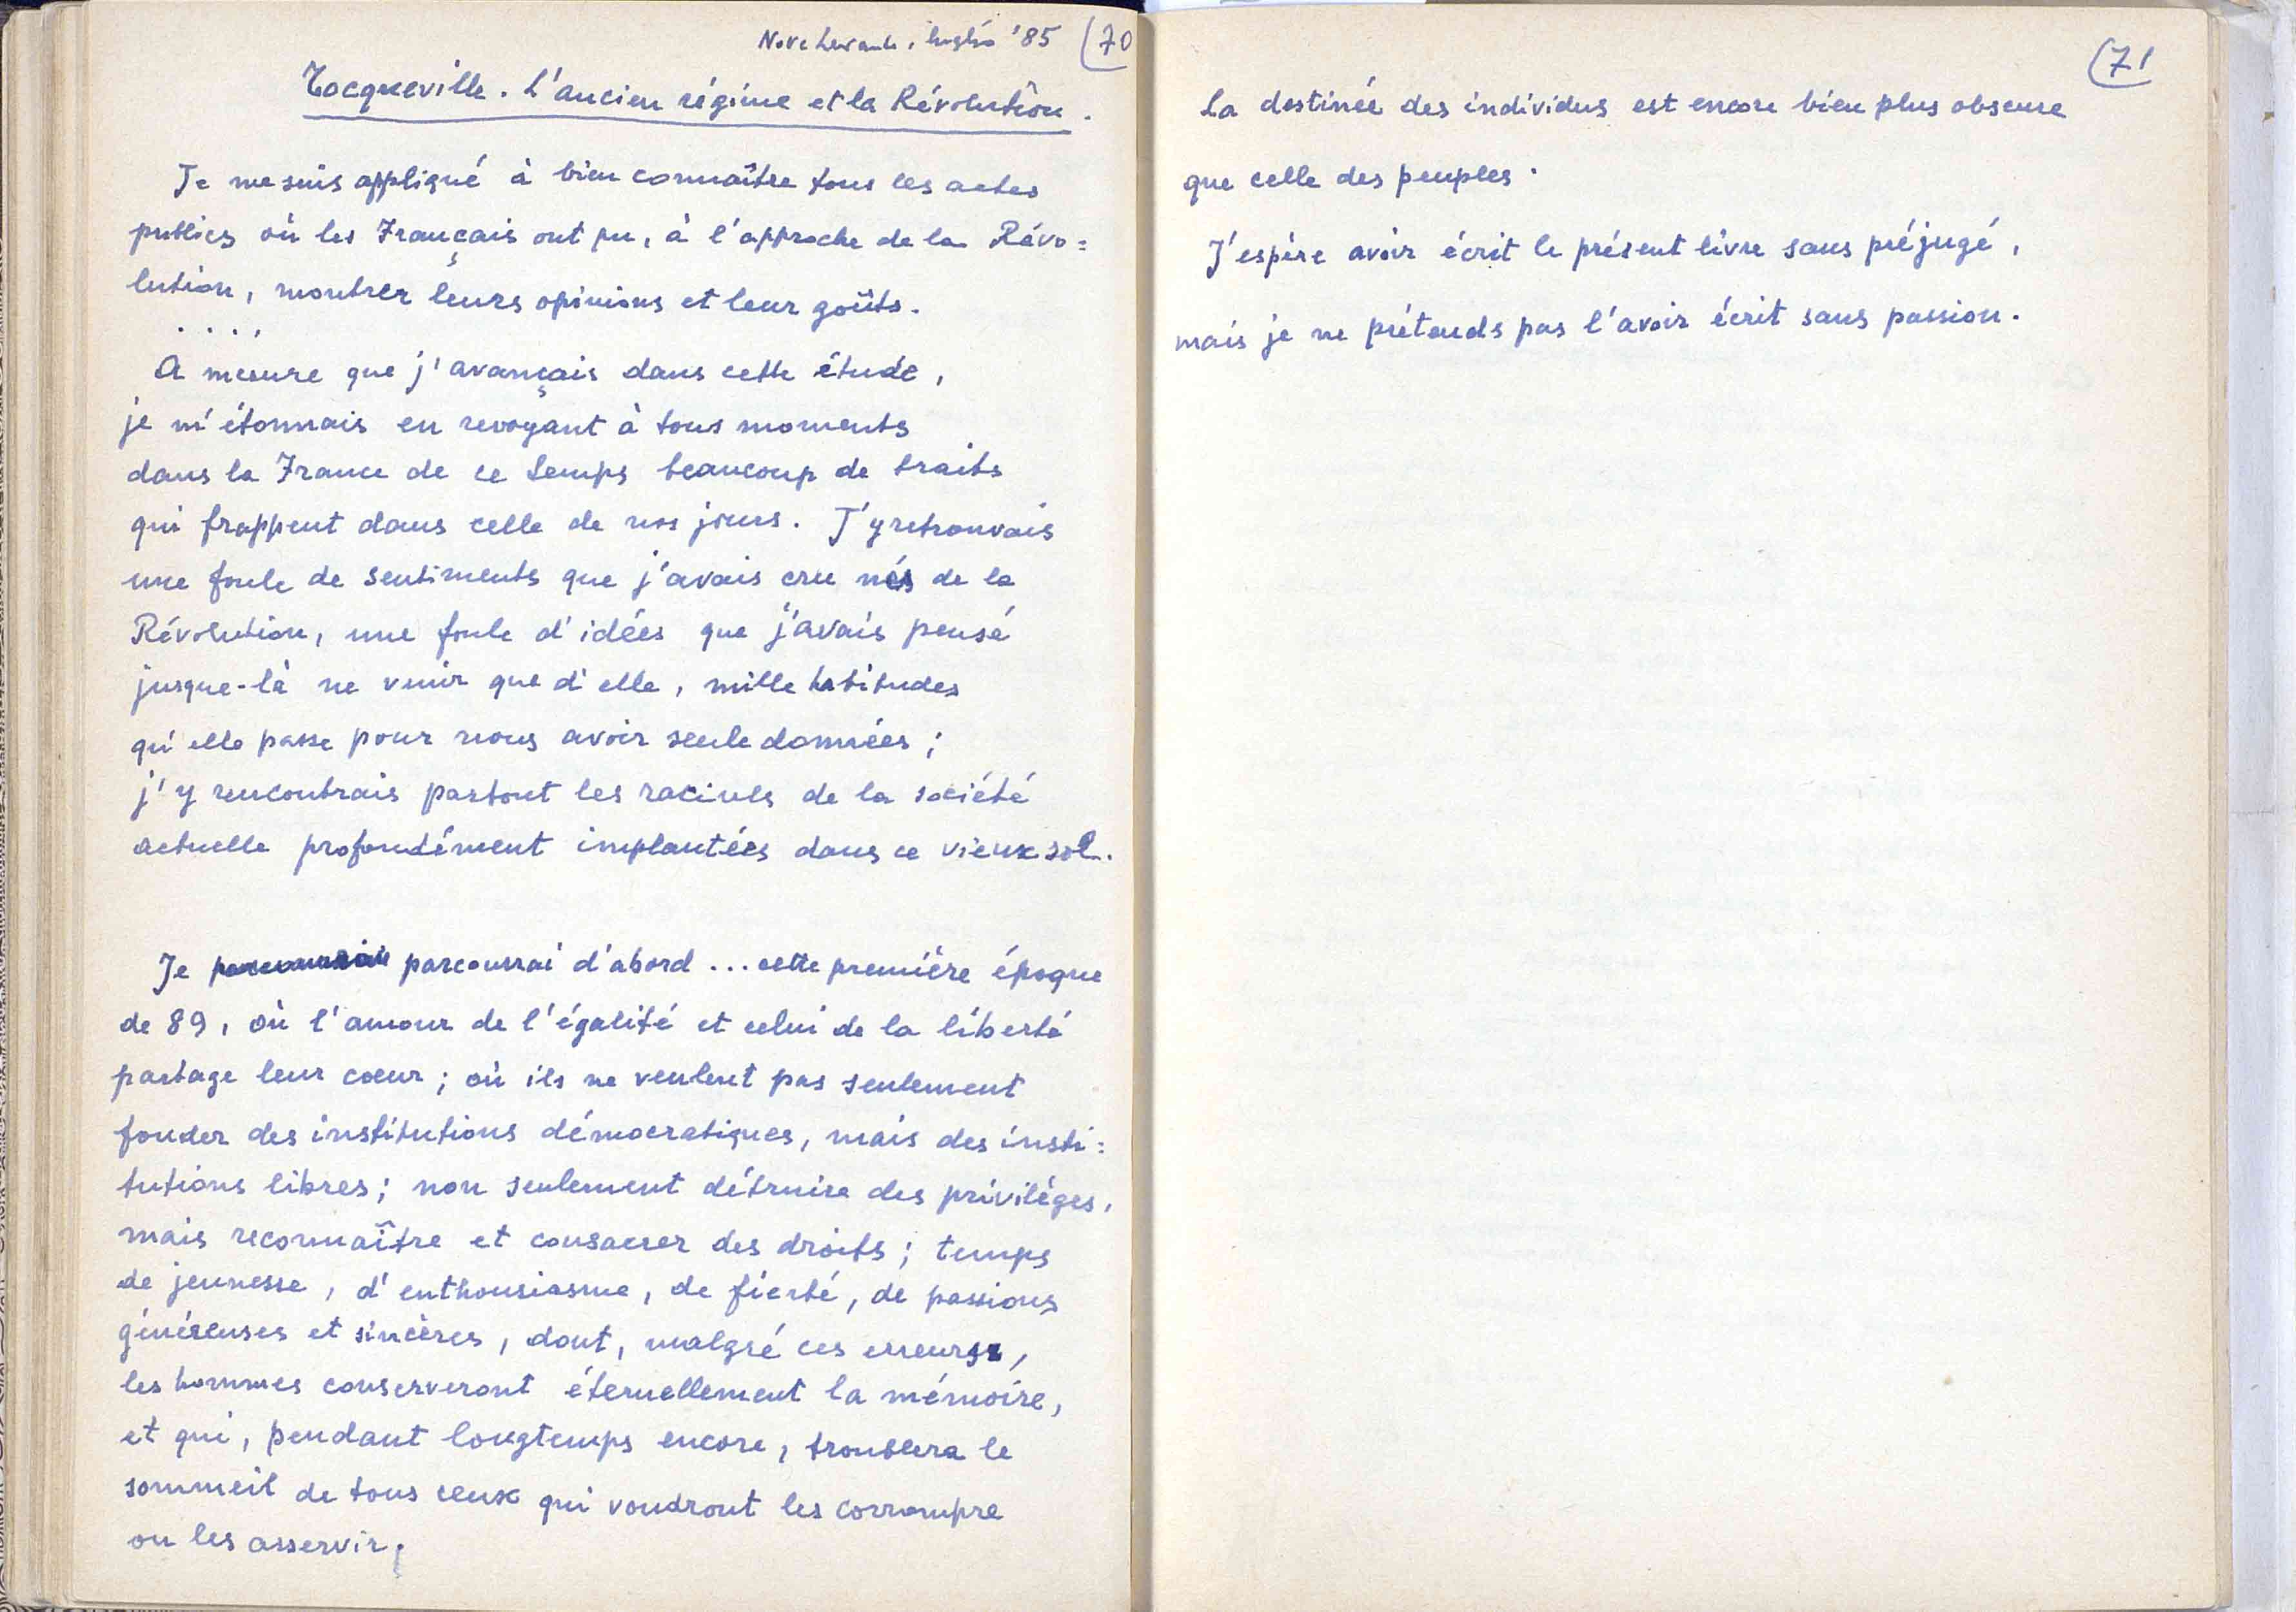 luglio '85 (70
Tocqueville. L'ancien régime et la Révolution.
Je me suis appliqué à bien connaître tous les actes
publics où les Français ont pu, à l'approche de la Révo=
lution, montrer leurs opinions et leur goûts.
. . . .
A mesure que j'avançais dans cette étude,
je m'étonnais en revoyant à tous moments
dans la France de ce temps beaucoup de traits
qui frappent dans celle de nos jours. J'y retrouvais
une foule de sentiments que j'avais cru nés de la
Révolution, une foule d'idées que j'avais pensé
jusque-là ne venir que d'elle, mille habitudes
qu'elle passe pour nous avoir seule données;
j'y rencontrais partout les racines de la société
actuelle profondément implantées dans ce vieux sol.
Je parcourrai d'abord ... cette première époque
de 89, où l'amour de l'égalité et celui de la liberté
partage leur coeur; où ils ne veulent pas seulement
fonder des institutions démocratiques, mais des insti=
tutions libres; non seulement détruire des privilèges,
mais reconnaître et consacrer des droits; temps
de jeunesse, d'enthousiasme, de fierté, de passions
généreuses et sincères, dont, malgré ces erreurs,
les hommes conserveront éternellement la mémoire,
et qui, pendant longtemps encore, troublera le
sommeil de tous ceux qui voudront les corrompre
ou les asservir.
(71
La destinée des individus est encore bien plus obscure
que celle des peuples.
J'espère avoir écrit le présent livre sans préjugé,
mais je ne prétends pas l'avoir écrit sans passion.